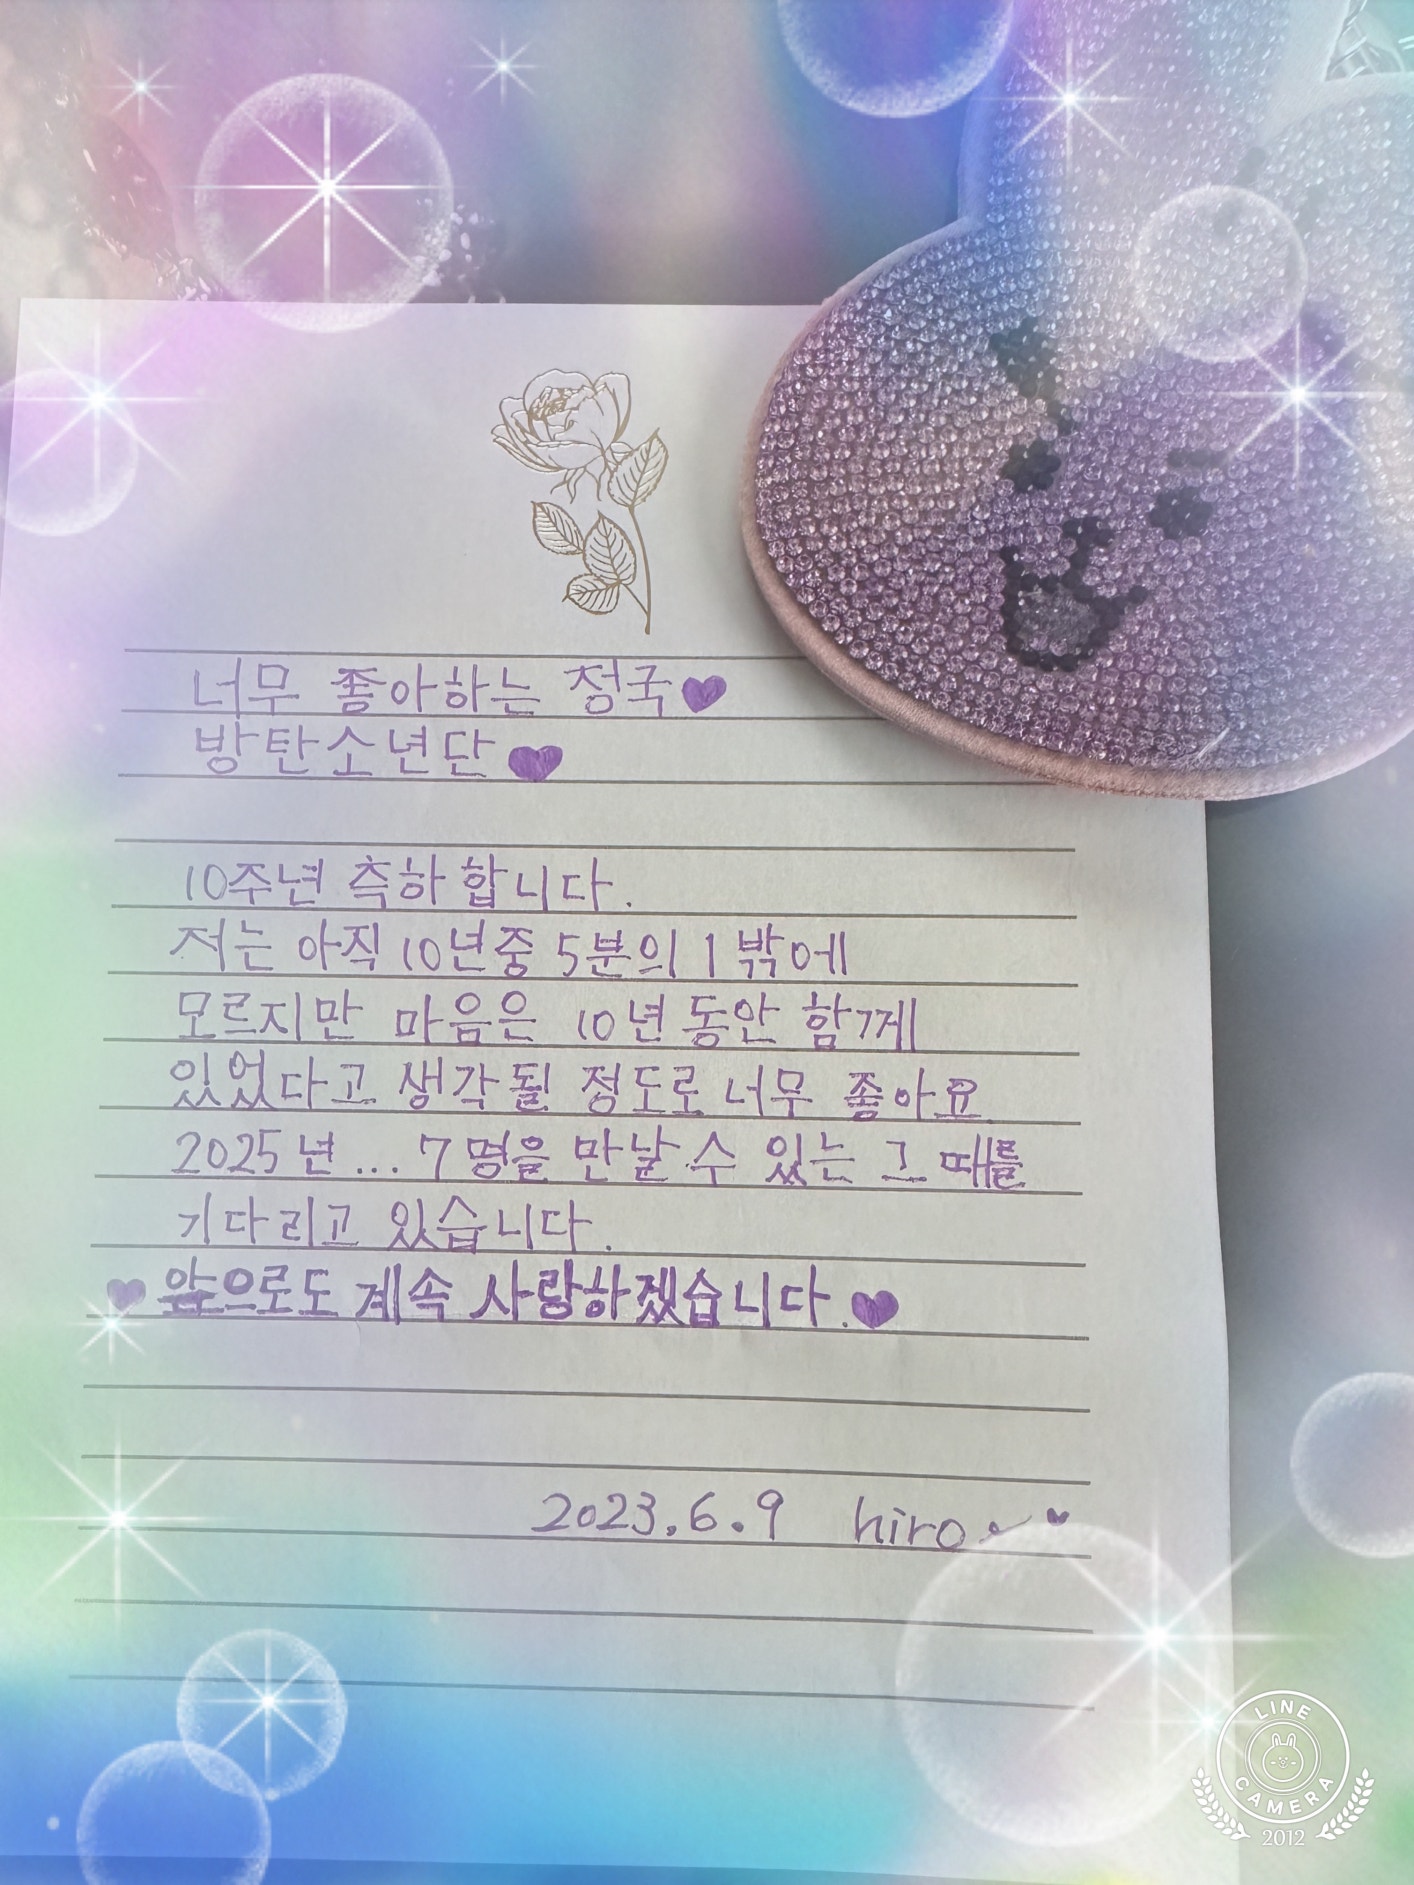 너무 좋아하는 정국💜
방탄소년단💜
10주년 축하합니다.
저는 아직 10년중 5분의 1 밖에
모르지만 마음은 10년 동안 함께
있었다고 생각될 정도로 너무 좋아요
2025년... 7명을 만날 수 있는 그 때를
기다리고 있습니다.
💜앞으로도 계속 사랑하겠습니다.💜
2023.6.9 hiro
LINE
CAMERA
2012